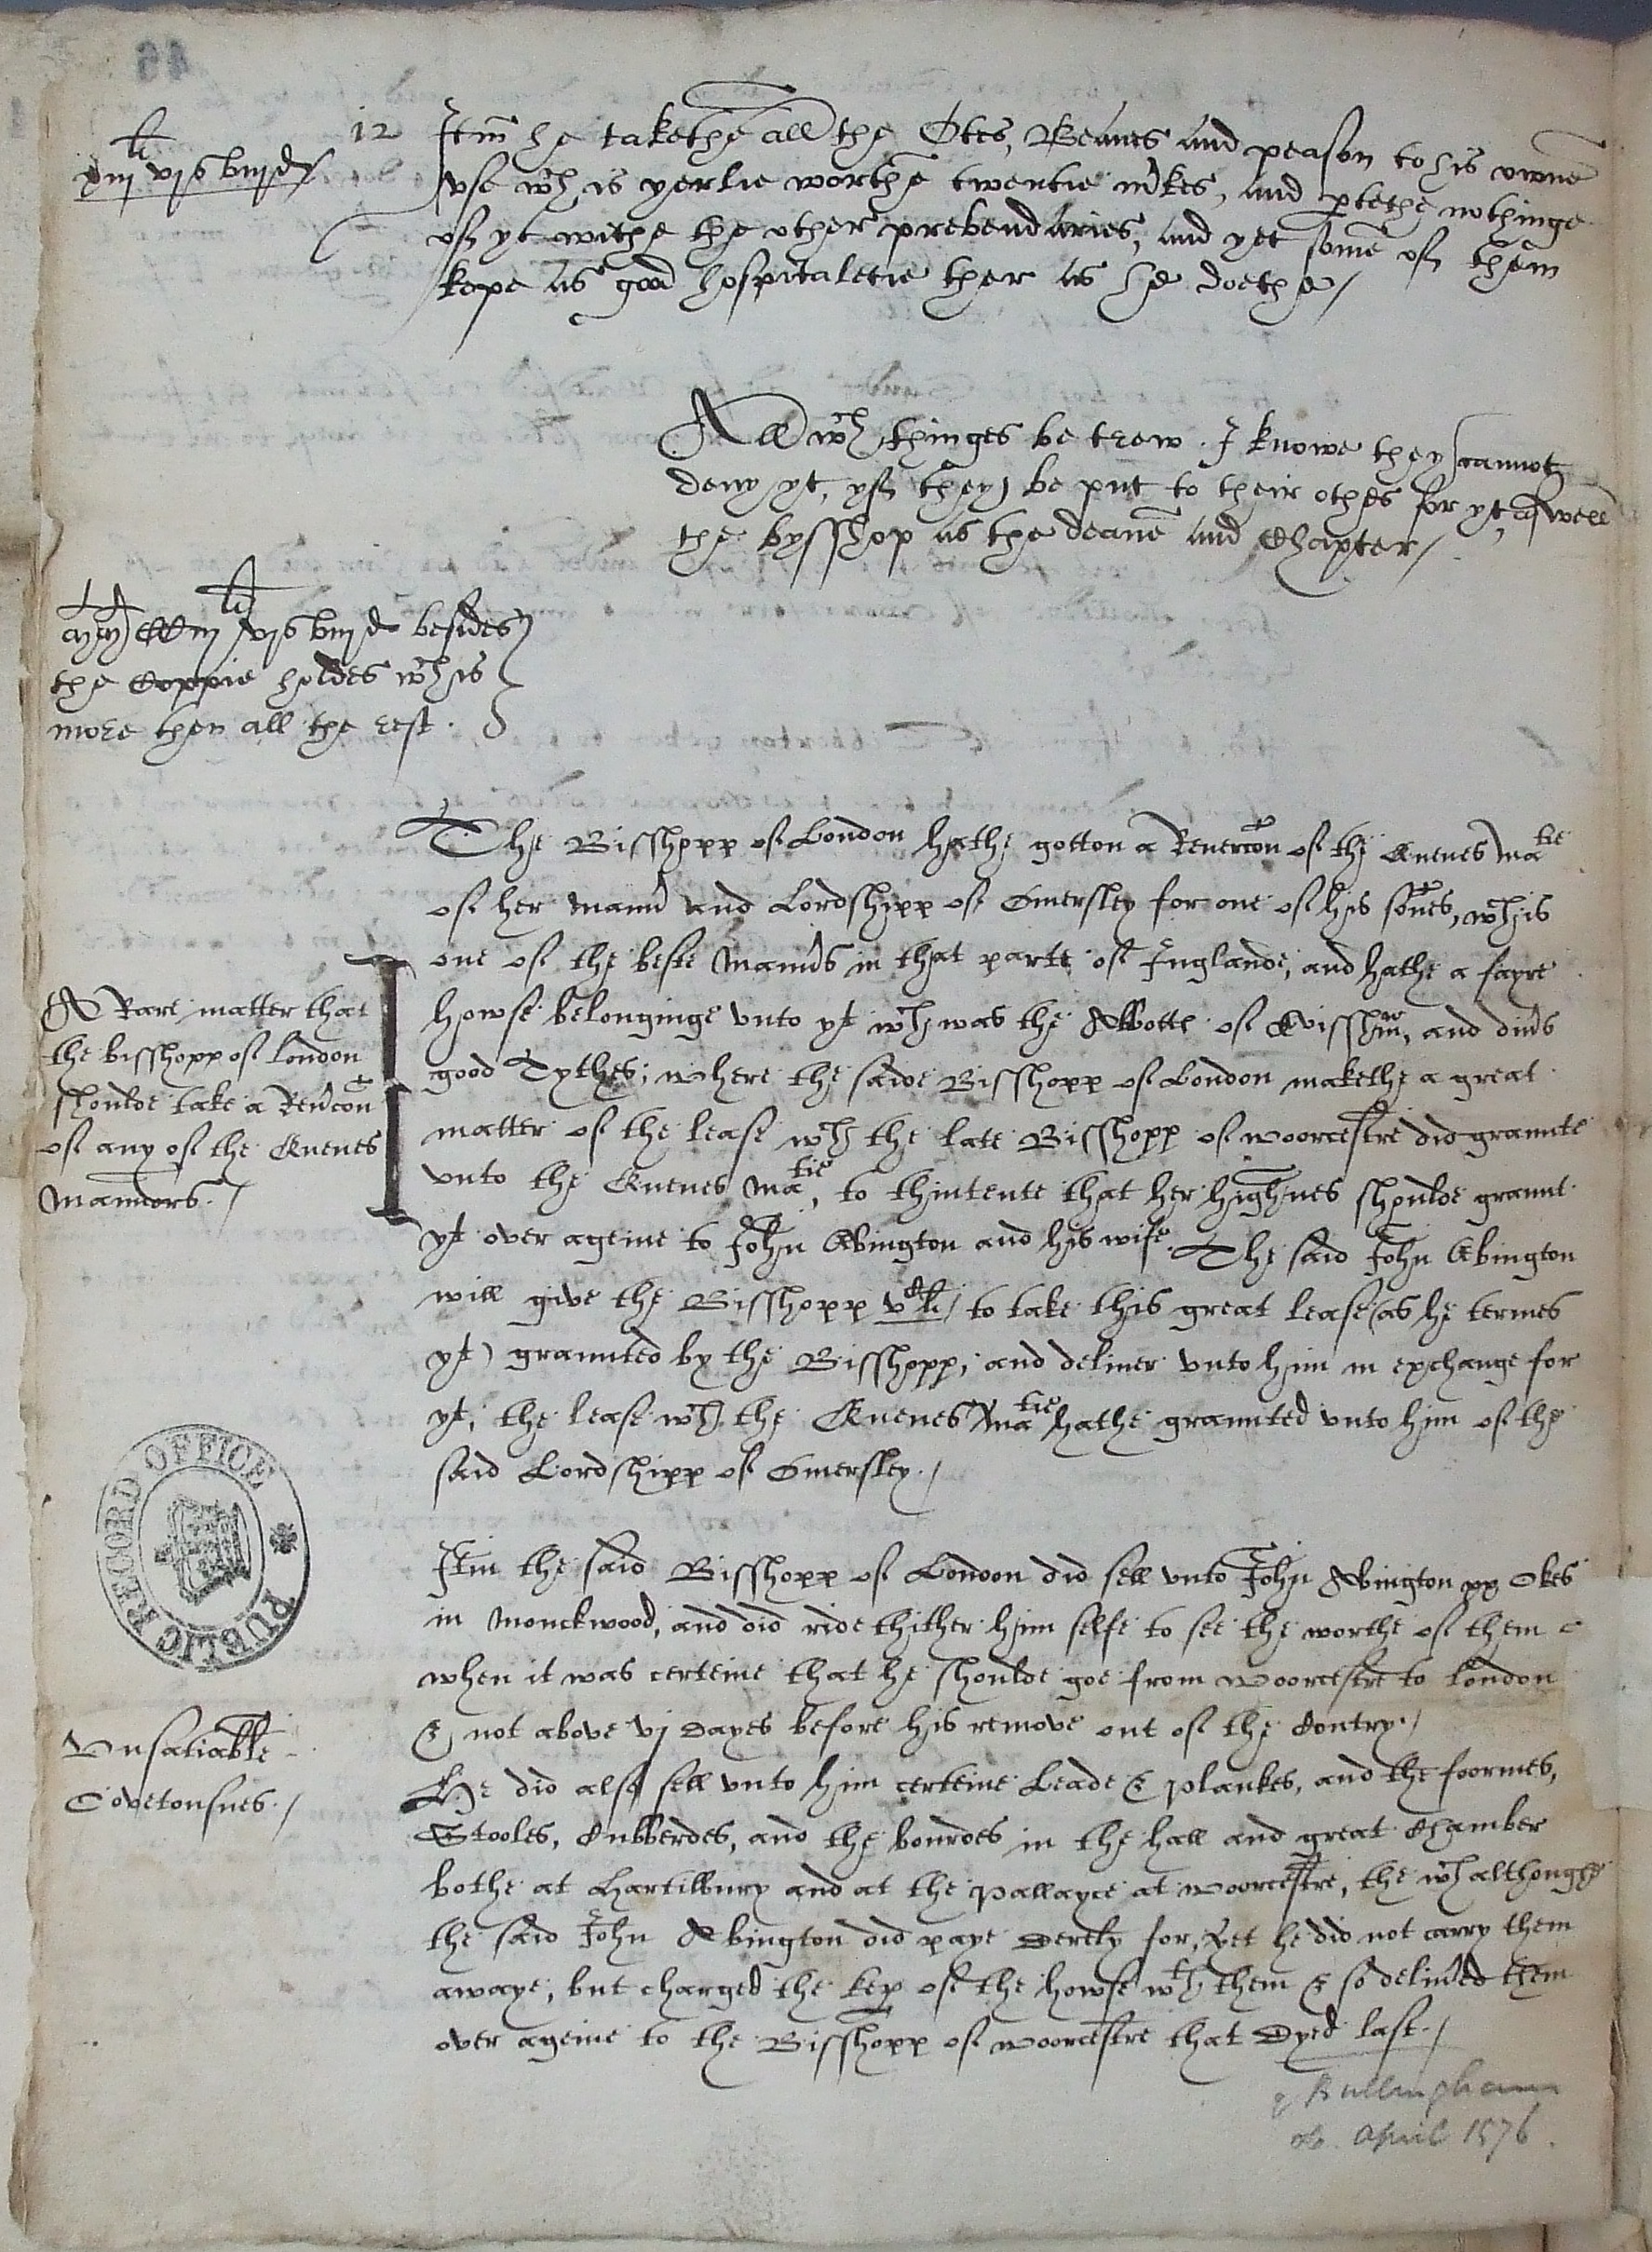 12 Itm he takethe all the Otes, Beanes and peason to his owne
xiij li vjs viijd
vse wch is yerlie worthe twentie mrkes, and ptethe nothinge
off yt withe the other prebendaries, and yet some off them
kepe as good hospitaletie ther as he doethe /
All wch thinges be trew. I knowe they cannot
deny yt, yff they be put to their othes for yt, as well
the bysshop as the deane and Chapter /
vjs viijd besides
the Coppie holdes wch is
more then all the rest.
The Bisshopp of London hathe gotton a Reuercon of the Quenes Matie
of her Mannr and Lordshipp of Omersley for one of his sones, wch is
one of the beste Mannrs in that parte of Inglande, and hathe a fayre
howse belonginge vnto yt wch was the Abbotte of Evisshm, and divrs
good Tythes; where the saide Bisshopp of London makethe a great
matter of the lease wch the late Bisshopp of Woorcestre did graunte
vnto the Quenes Matie, to thintente that her highnes shoulde graunt
yt over ageine to John Abington and his wife. The said John Abington
will give the Bisshopp vC li / to take this great lease (as he termes
yt) graunted by the Bisshopp, and deliuer vnto him in exchange for
yt, the lease wch the Quenes Matie hathe graunted vnto him of the
said Lordshipp of Omersley. /
A Rare matter that
the bisshopp of london
shoulde take a Revrcon
of any of the Quenes
Mannors. /
Itm the said Bisshopp of London did sell vnto John Abington xx Okes
in Monckwood, and did ride thither him selfe to see the worthe of them
when it was certeine that he shoulde goe from Woorcestre to London
& not above vj Dayes before his remove out of the Contry. /
Vnsatiable
Covetousnes. /
He did also sell vnto him certeine Leade & plankes, and the foormes,
Stooles, Cubberdes, and the bourdes in the hall and great Chamber
bothe at Hartilbury and at the Pallayce at Woorcestre, the wch althoughe
the said John Abington did paye Derely for, Yet he did not carry them
awaye, but charged the kep of the howse wth them & so delivred them
over ageine to the Bisshopp of Woorcestre that Dyed last. /
Bullingham
ob. April 1576.
PUBLIC RECORD OFFICE